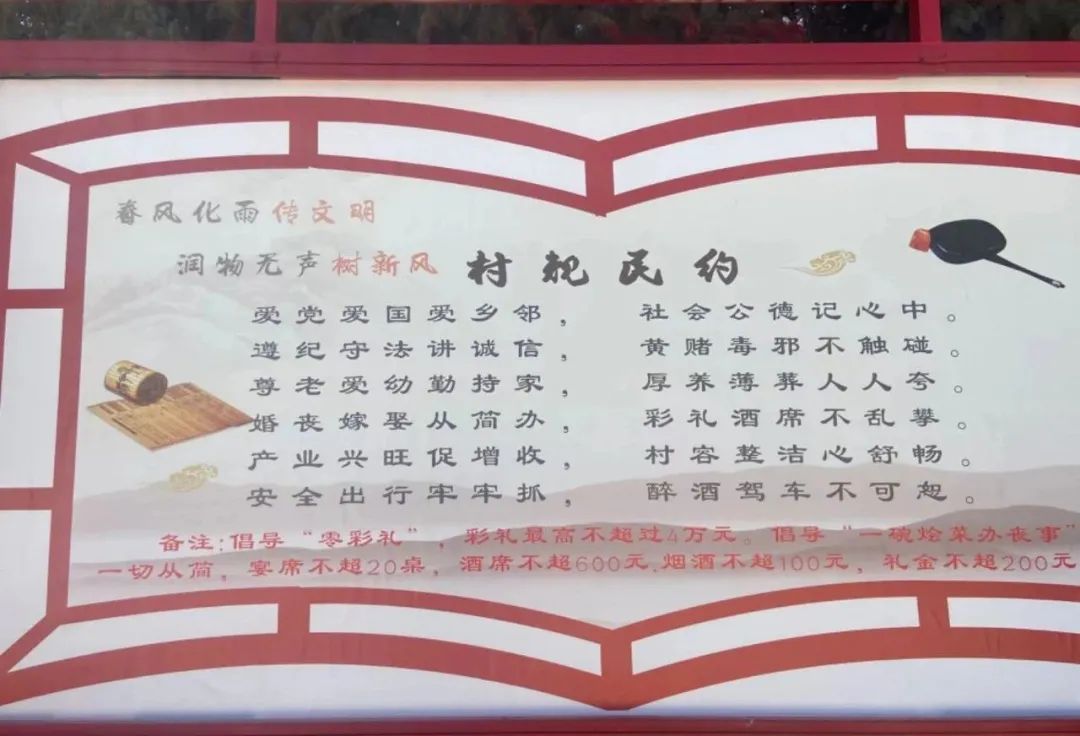 春风化雨传文明
润物无声树新风
村规民约
爱党爱国爱乡邻，社会公德记心中。
遵纪守法讲诚信，黄赌毒邪不触碰。
尊老爱幼勤持家，厚养薄葬人人夸。
婚丧嫁娶从简办，彩礼酒席不乱攀。
产业兴旺促增收，村容整洁心舒畅。
安全出行牢牢抓，醉酒驾车不可恕。
备注：倡导“零彩礼”，彩礼最高不超过4万元。倡导“一碗烩菜办丧事”
一切从简，宴席不超20桌，酒席不超600元.烟酒不超100元，礼金不超200元